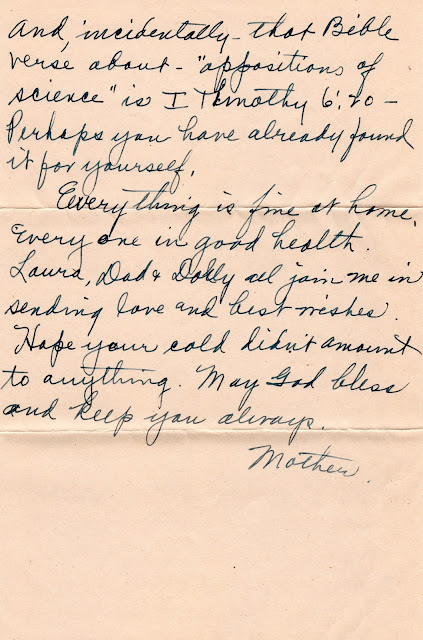 And, incidentally - that Bible
verse about - "oppositions of
science" is I Timothy 6:20 -
Perhaps you have already found
it for yourself.
Everything is fine at home.
Every one in good health.
Laura, Dad & Dolly all join me in
sending love and best wishes.
Hope your cold didn't amount
to anything. May God bless
and keep you always.
Mother.